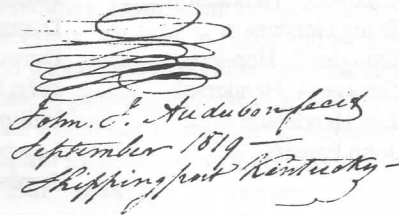 John. J. Audubon fecit
September 1819 —
Shippingport Kentucky —